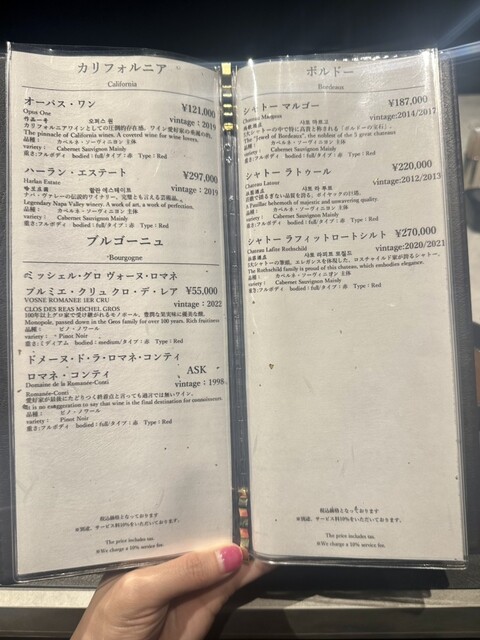 カリフォルニア
California
オーパス・ワン ¥121,000
Opus One vintage：2019
作品一号 오퍼스 원
カリフォルニアワインとしての圧倒的存在感、ワイン愛好家の垂涎の的。
The pinnacle of California wines. A coveted wine for wine lovers.
品種： カベルネ・ソーヴィニヨン 主体
variety： Cabernet Sauvignon Mainly
重さ:フルボディ bodied：full/タイプ：赤 Type：Red
ハーラン・エステート ¥297,000
Harlan Estate vintage：2019
할란 에스테이트
ナパ・ヴァレーの伝説的ワイナリー。完璧とも言える芸術品。
Legendary Napa Valley winery. A work of art, a work of perfection.
品種： カベルネ・ソーヴィニヨン 主体
variety： Cabernet Sauvignon Mainly
重さ:フルボディ bodied：full/タイプ：赤 Type：Red
ブルゴーニュ
Bourgogne
ミッシェル・グロ ヴォーヌ・ロマネ
プルミエ・クリュ クロ・デ・レア ¥55,000
VOSNE ROMANEE 1ER CRU vintage：2022
CLOS DES REAS MICHEL GROS
100年以上グロ家で受け継がれるモノポール。豊潤な果実味に優美な酸。
Monopole, passed down in the Gros family for over 100 years. Rich fruitiness
品種： ピノ・ノワール
variety： Pinot Noir
重さ:ミディアム bodied：medium/タイプ：赤 Type：Red
ドメーヌ・ド・ラ・ロマネ・コンティ
ロマネ・コンティ ASK
Domaine de la Romanée-Conti vintage：1998
Romanée-Conti
愛好家が最後にたどりつく終着点と言っても過言では無いワイン。
It is no exaggeration to say that wine is the final destination for connoisseurs.
品種： ピノ・ノワール
variety： Pinot Noir
重さ:フルボディ bodied：full/タイプ：赤 Type：Red
税込価格となっております
※別途、サービス料10%をいただいております。
The price includes tax.
※We charge a 10% service fee.
ボルドー
Bordeaux
シャトー マルゴー ¥187,000
Chateau Margaux vintage：2014/2017
샤토 마르고
5大シャトーの中で特に高貴と称される「ボルドーの宝石」。
The "Jewel of Bordeaux", the noblest of the 5 great chateaux
品種： カベルネ・ソーヴィニヨン 主体
variety： Cabernet Sauvignon Mainly
重さ:フルボディ bodied：full/タイプ：赤 Type：Red
シャトー ラトゥール ¥220,000
Chateau Latour vintage：2012/2013
샤토 라 투르
A Pauillac behemoth of majestic and unwavering quality.
品種： カベルネ・ソーヴィニヨン 主体
variety： Cabernet Sauvignon Mainly
重さ:フルボディ bodied：full/タイプ：赤 Type：Red
シャトー ラフィットロートシルト ¥270,000
Chateau Lafite Rothschild vintage：2020/2021
샤토 라피트 로칠드
5大シャトーの筆頭。エレガンスを体現した、ロスチャイルド家が誇るシャトー。
The Rothschild family is proud of this chateau, which embodies elegance.
品種： カベルネ・ソーヴィニヨン 主体
variety： Cabernet Sauvignon Mainly
重さ:フルボディ bodied：full/タイプ：赤 Type：Red
税込価格となっております
※別途、サービス料10%をいただいております。
The price includes tax.
※We charge a 10% service fee.